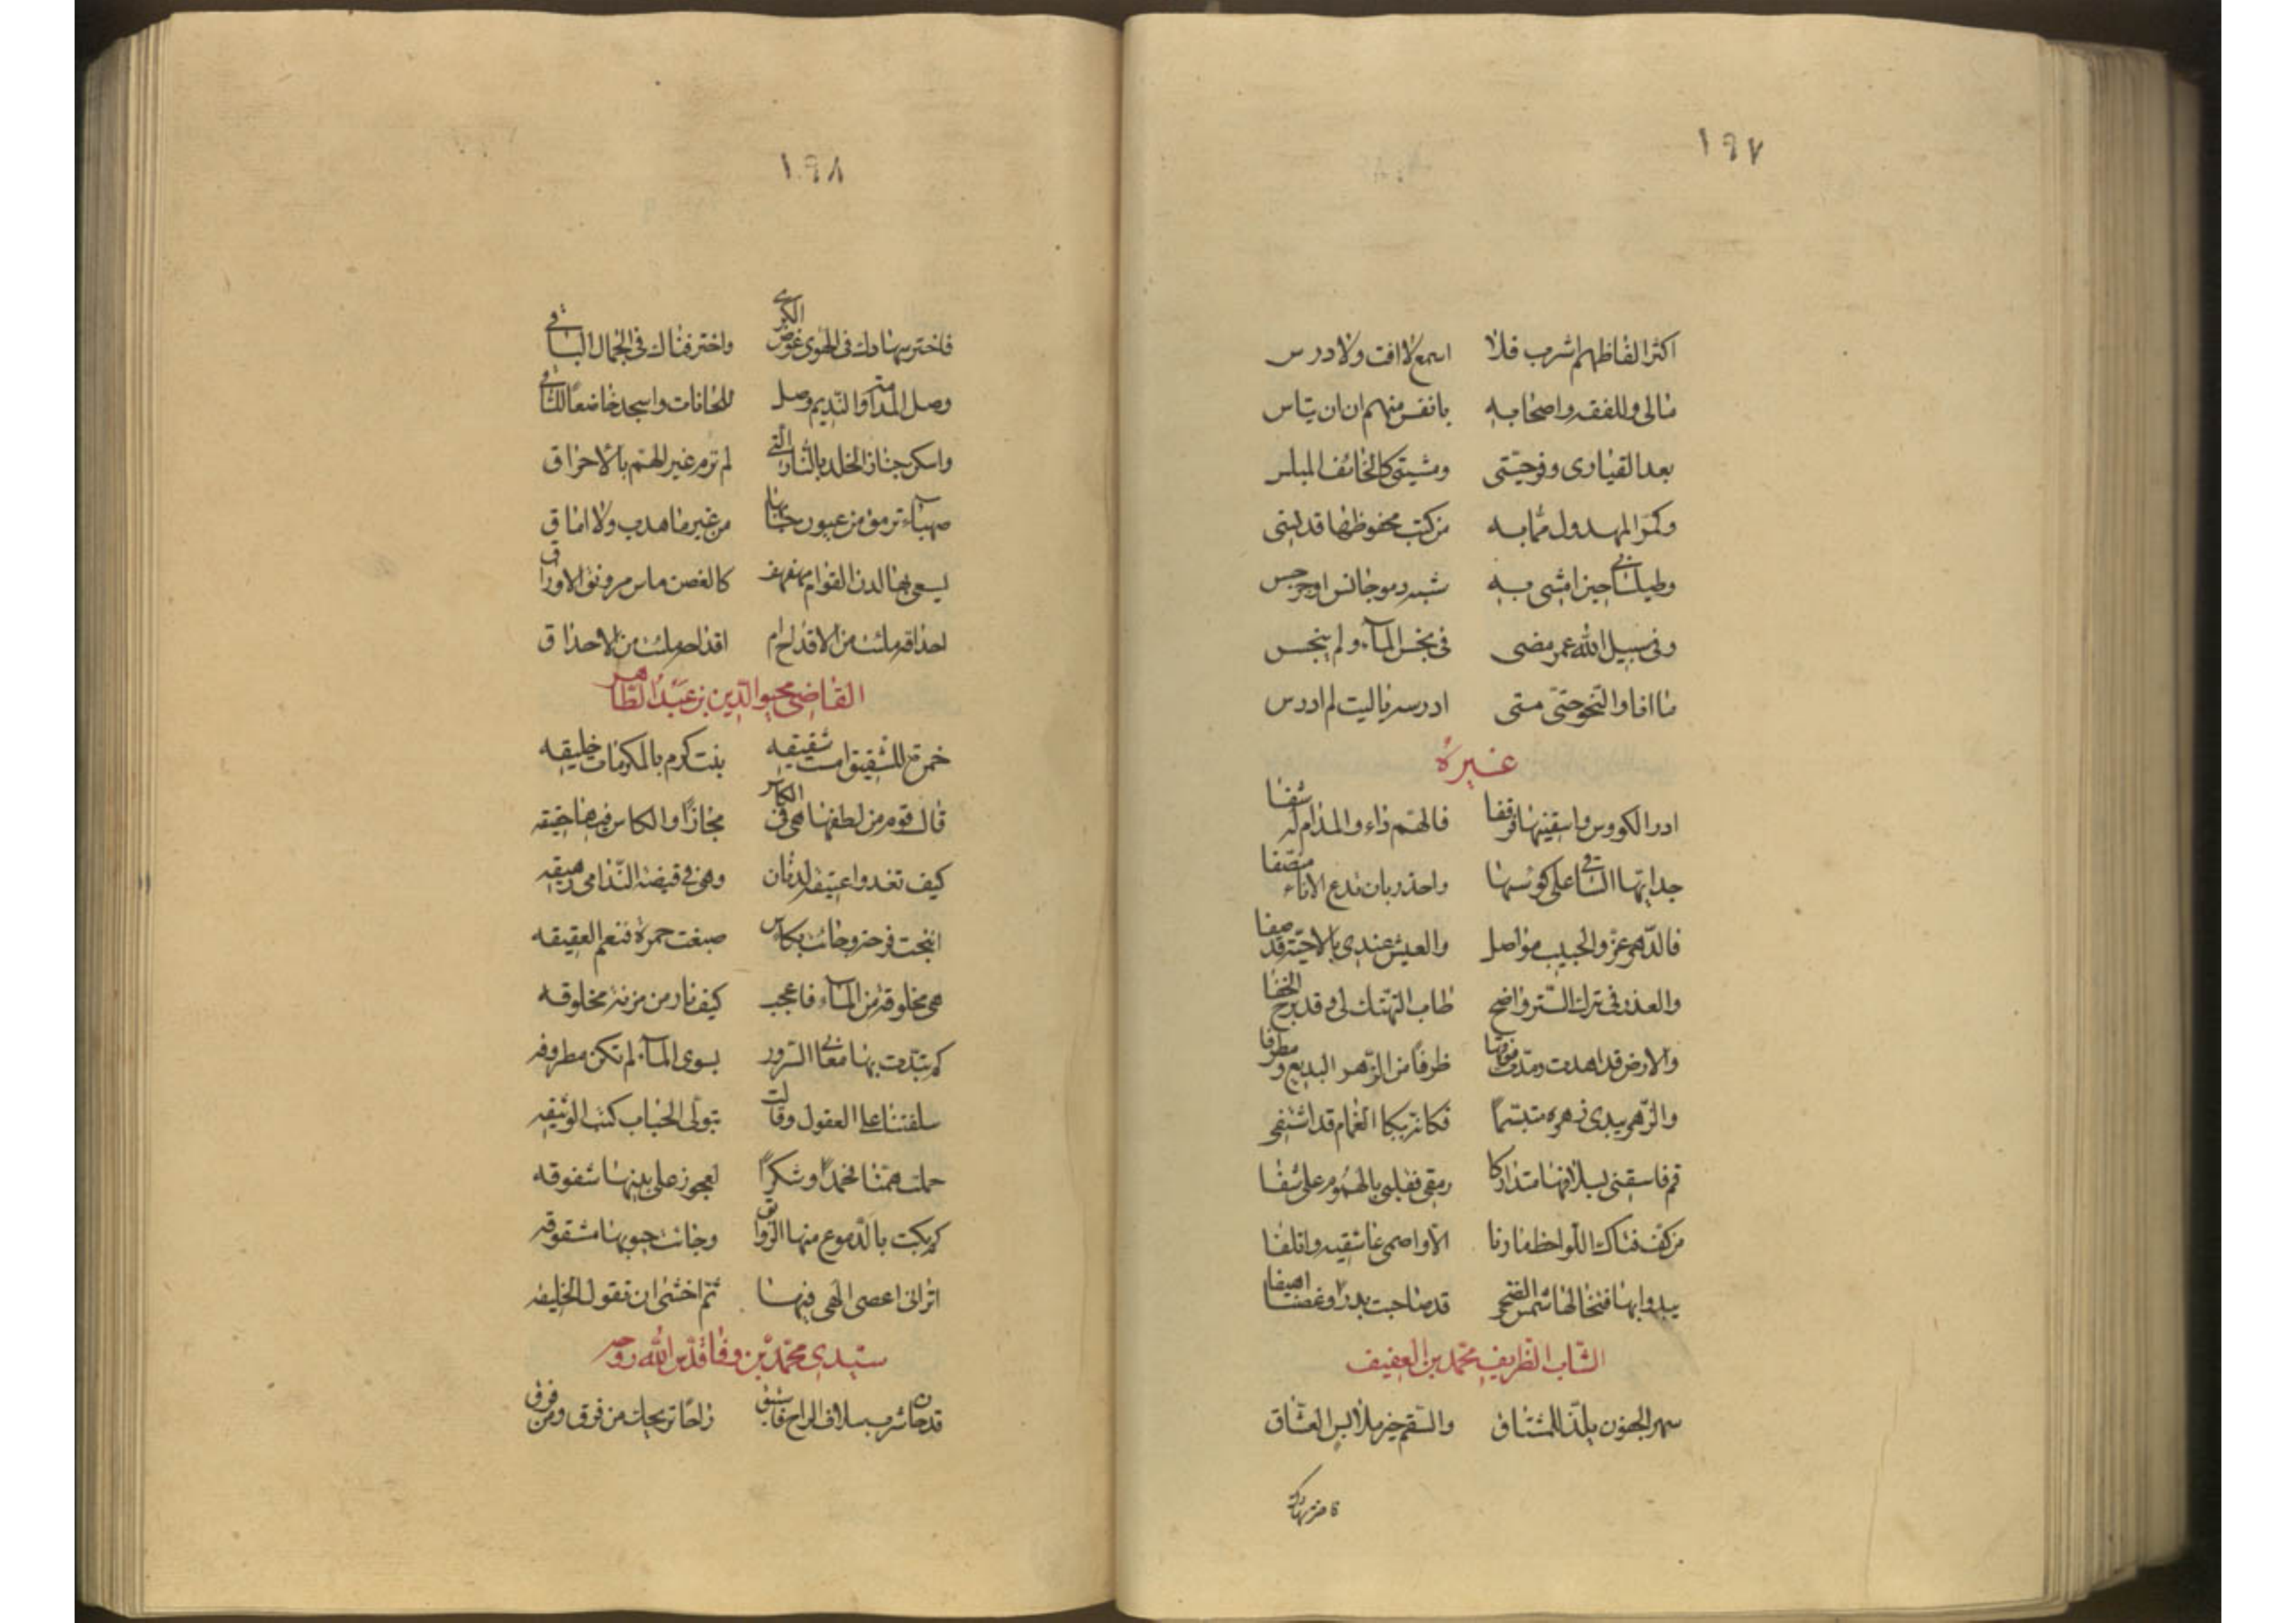 ١٩٧
اكثر الفاظهم اشرب فلا اسمع لا افت ولا درس
مالى وللفقه واصحابه بانفس منهم ان ان يتاس
بعد القيادى وفوجيتى ومشيتى كالخائف المبلس
من كتب محفوظها قد نسى
وطيلسانى حين امشى به شبه
وفى سبيل الله عمر مضى فى نجس المآء ولم ينجس
ما انا والنحو حتى متى ادرسه ياليت لم ادرس
غيره
ادر الكووس واسقينها قرقفا فالهم داء والمدام له شفا
ايها الساقى على كوسها واحذر بان تدع الاناء منصفا
فالدهر عز والحبيب مواصل والعيش عندى بالاحبة قد صفا
والعذر فى ترك الستر واضح طاب التهتك لى وقد برح الخفا
والارض قد اهدت ومدت فوقها ظرفا من الزهر البديع ومطرفا
والزهر يبدى زهره متبسما فكانه ببكا الغمام قد اشتفى
قم فاسقنى بسلافها متداركا رمقى فقلبى بالهموم على شفا
من كف فتاك اللواحظ مارنا الا واصمى عاشقيه واتلفا
يبدو ابها فتخالها شمس الضحى قد صاحبت بدرا وغصنا اهيفا
الشاب الظريف محمد بن العفيف
سهر الجفون يلذ للمشتاق والسقم خير ملابس العشاق
١٩٨
فاختر سهادك فى الهوى عوض الكرى واختر فناك فى الجمال الباقى
وصل المدامة والنديم وصل للحانات واسجد خاضعا للساقى
واسكن جنان الخلد بالنار التى لم ترم غير الهم بالاحراق
صهبآء ترمق من عيون حبابها من غير ما هدب ولا اماق
يسعى بها لدن القوام مهفهف كالغصن ماس مرونق الاوراق
احداقه ملئت من الاقداح ام اقداحه ملئت من الاحداق
القاضى محيو الدين بن عبد الظاهر
خمرة للشقيق امست شقيقه بنت كرم بالمكرمات خليقه
قال قوم من لطفها هى فى الكاس مجازا والكاس فيها حقيقه
كيف تغدوا عتيقة لدنان وهى فى قبضة الندامى رقيقه
انتجت فرحة وجائت بكاس صبغت حمرة فنعم العقيقه
هى مخلوقة من المآء فاعجب كيف نار من مزنة مخلوقه
كم تبدت بها معانى السرور بسوى المآء لم تكن مطروقه
سلفتنا على العقول وقالت بتولى الحباب كتب الوثيقه
حملت همنا فحمدا وشكرا لعجوز على بنيها شفوقه
كم بكت بالدموع منها الرواوق وجائت جيوبها مشقوقه
اترانى اعصى الهى فيها ثم اخشى ان تقول الخليقه
سيدى محمد بن وفا قدس الله روحه
قد حان شرب سلاف الراح فاستبق راحا تريحك من فرق ومن فرق